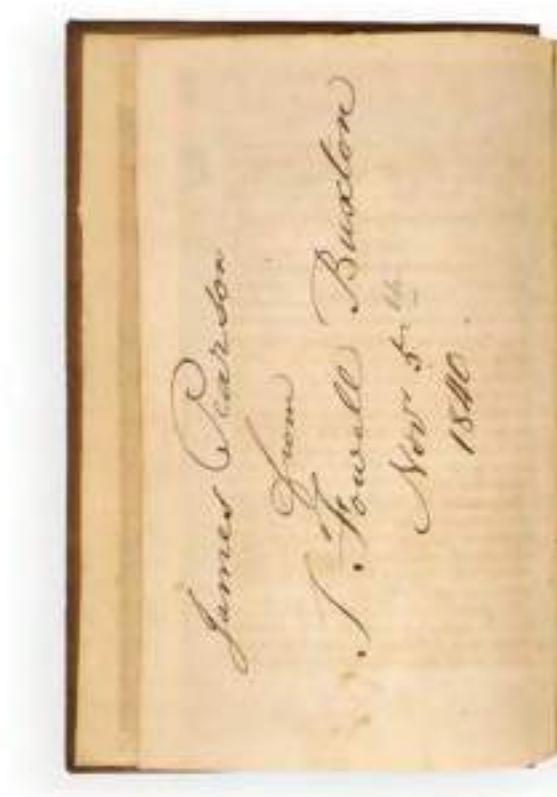 James Pearson
from
T. Fowell Buxton
Nov 5th
1840.